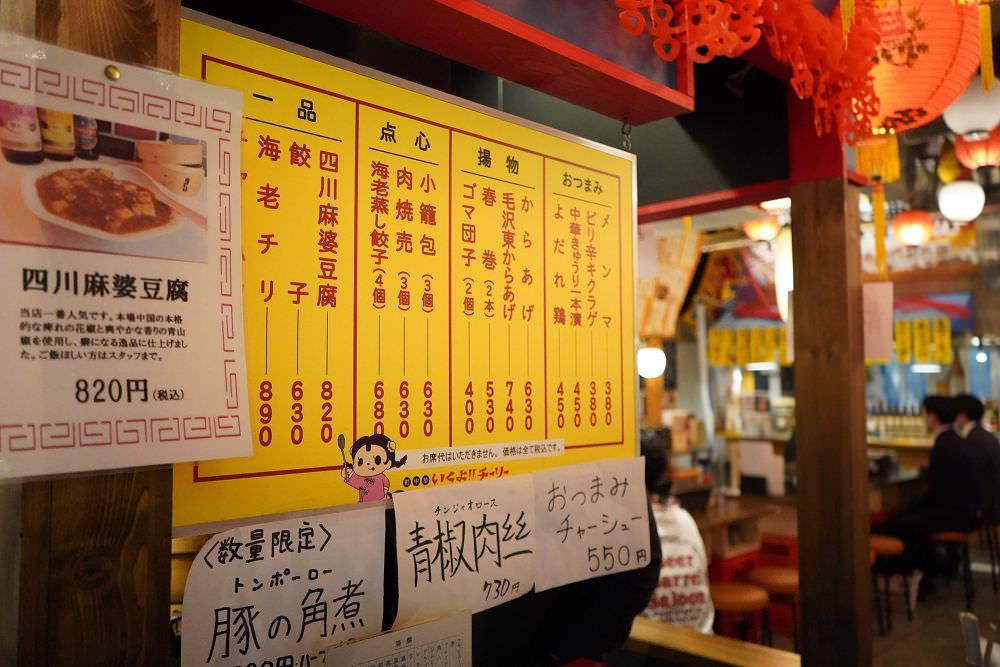 四川麻婆豆腐
当店一番人気です。本場中国の本格
的な痺れの花椒と爽やかな香りの青山
椒を使用し、癖になる逸品に仕上げまし
た。ご飯ほしい方はスタッフまで。
820円(税込)
おつまみ
メンマ 380
ピリ辛キクラゲ 380
中華きゅうり一本漬 450
よだれ鶏 450
揚物
からあげ 630
毛沢東からあげ 740
春巻(2本) 530
ゴマ団子(2個) 400
点心
小籠包(3個) 630
肉焼売(3個) 630
海老蒸し餃子(4個) 680
一品
四川麻婆豆腐 820
餃子 630
海老チリ 890
お席代はいただきません。価格は全て税込です。
<数量限定>
トンポーロー
豚の角煮
チンジャオロース
青椒肉絲
730円
おつまみ
チャーシュー
550円